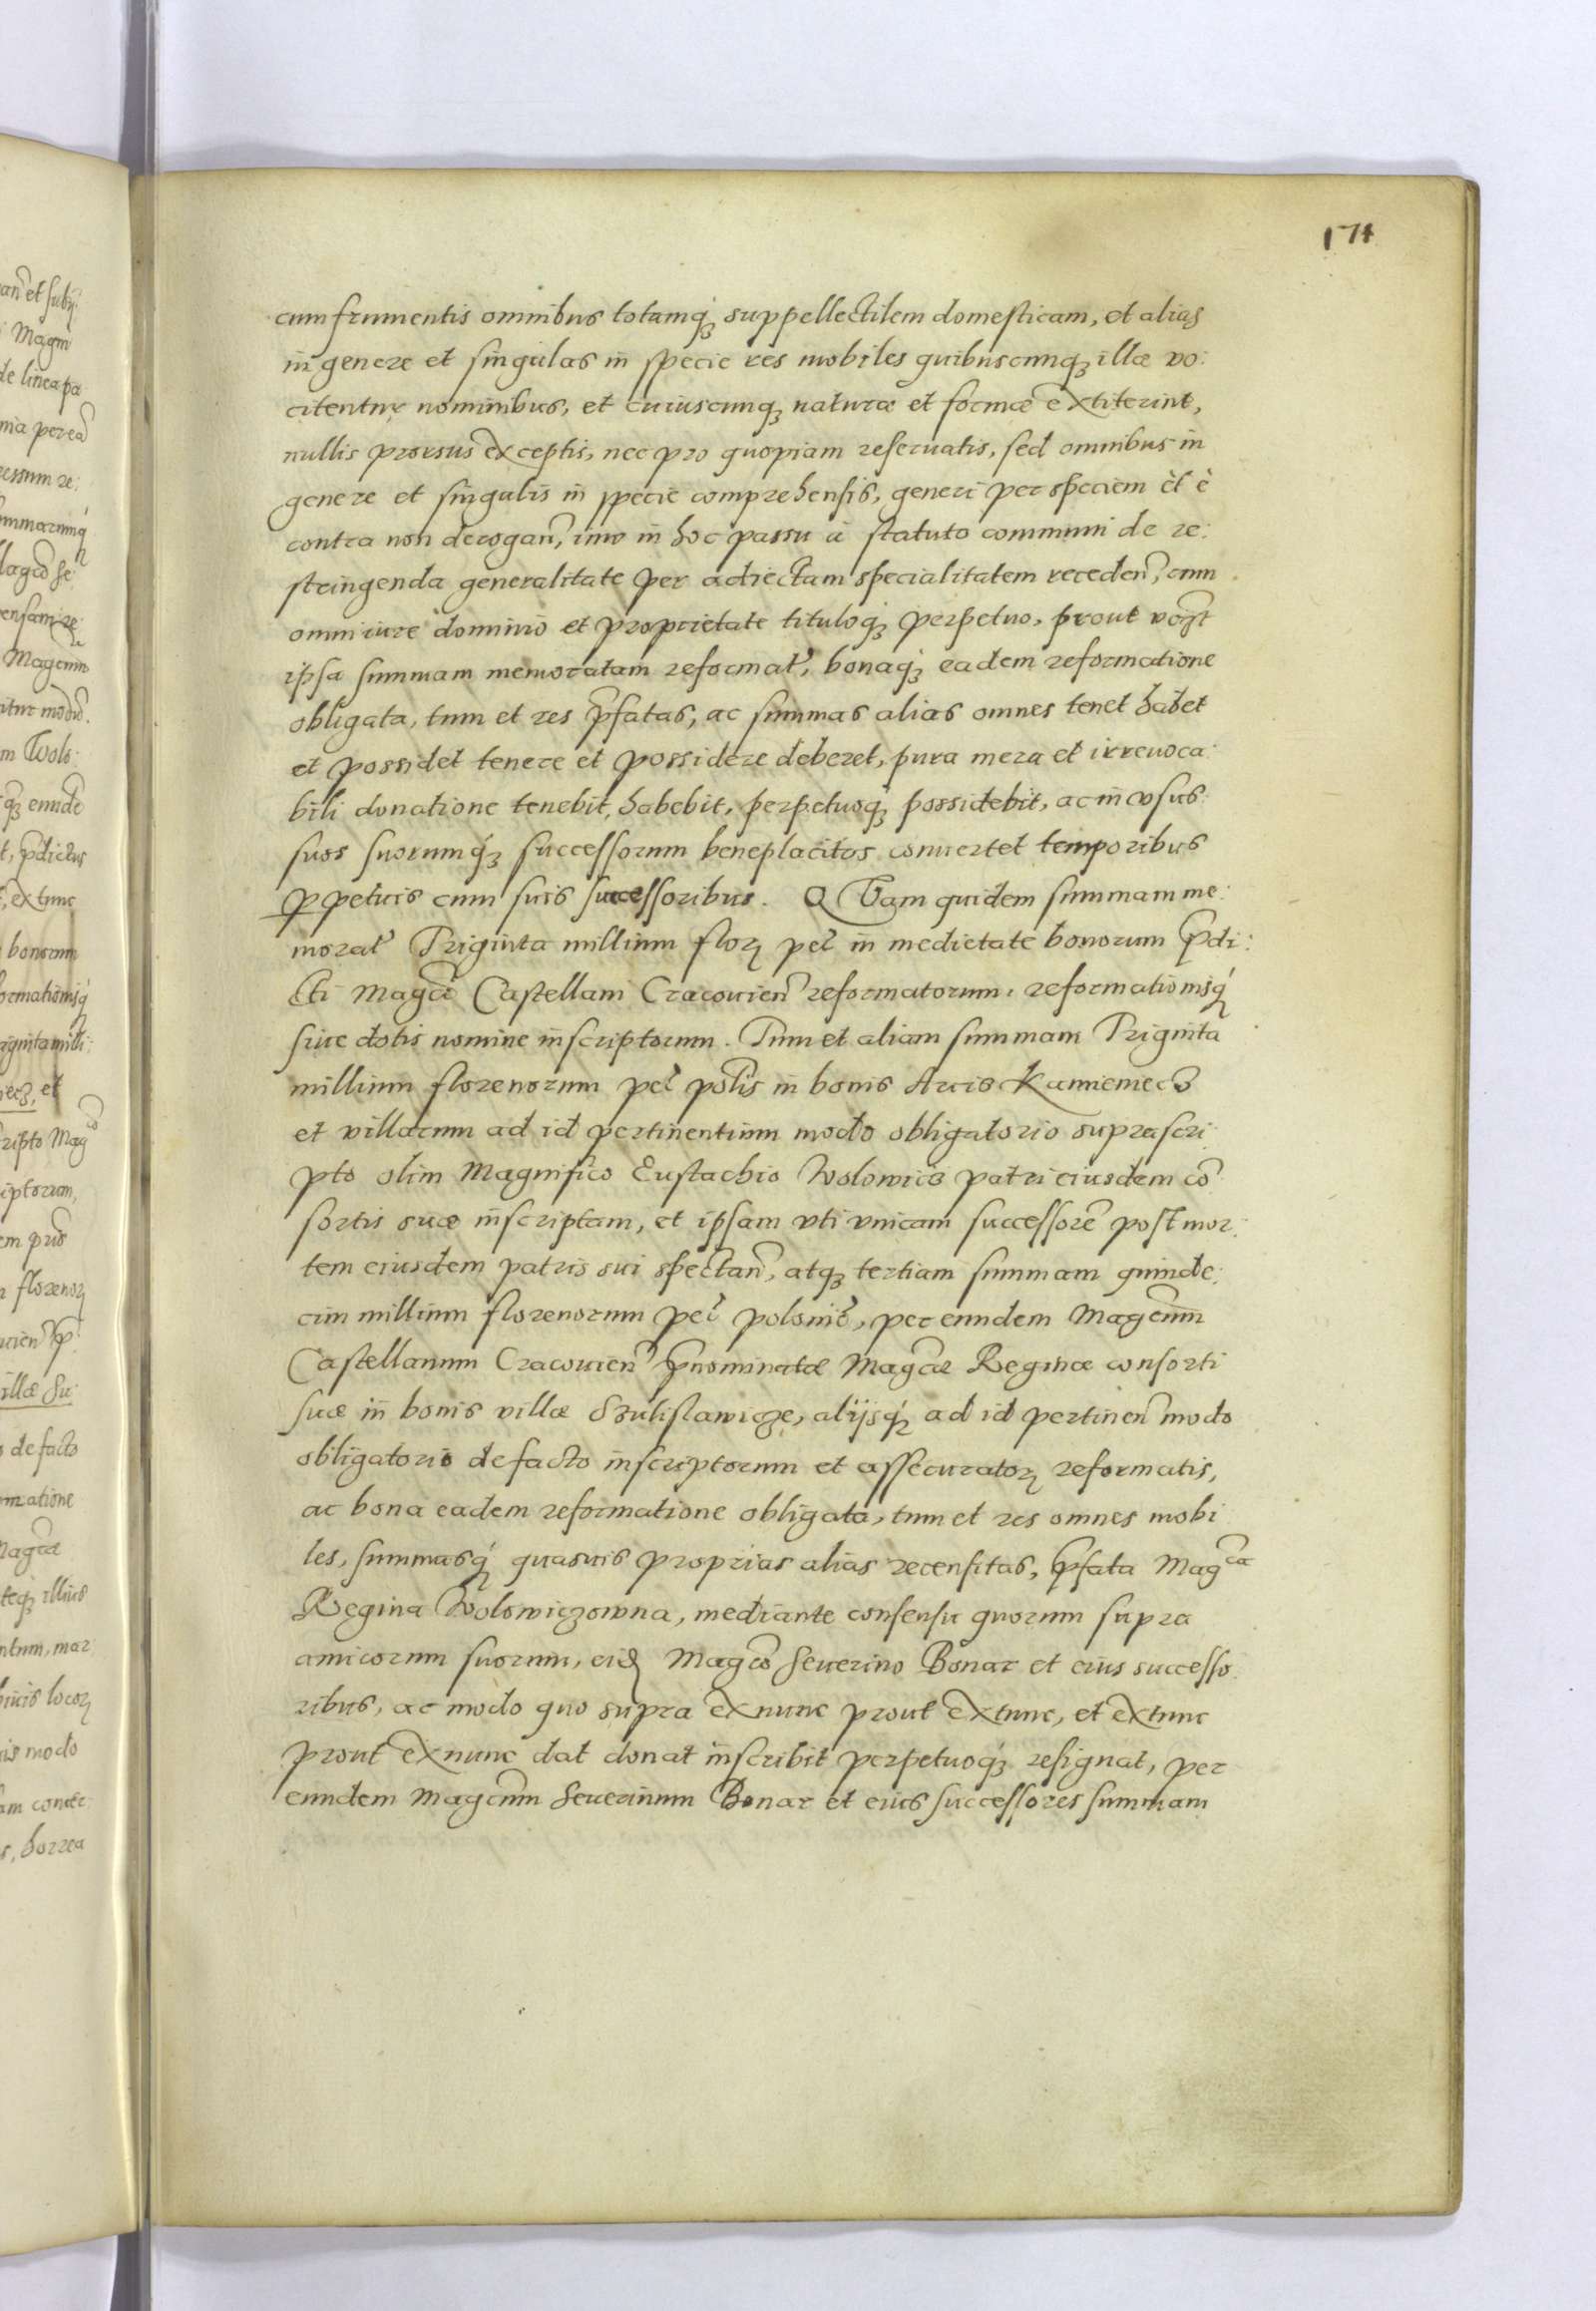 174
cum frumentis omnibus totamq₃ suppellectilem domesticam, et alias
in genere et singulas in specie res mobiles quibuscunq₃ illæ vo:
citentur nominibus, et cuiuscunq₃ naturæ et formæ extiterint,
nullis prorsus exceptis, nec pro quopiam reseruatis, sed omnibus in
genere et singulis in specie comprehensis, generi per speciem et è
contra non derogan̄, imo in hoc passu à statuto communi de re:
stringenda generalitate per adiectam specialitatem receden̄, cum
omni iure dominio et proprietate tituloq₃ perpetuo, prout
ipsa summam memoratam reformat̄, bonaq₃ eadem reformatione
obligata, tum et res p̄fatas, ac summas alias omnes tenet habet
et possidet tenere et possidere deberet, pura mera et irreuoca:
bili donatione tenebit, habebit, perpetuoq₃ possidebit, ac in vsus
suos suorumq₃ successorum beneplacitos conuertet temporibus
ꝑpetuis cum suis successoribus. QVam quidem summam me:
morat̄ Triginta millium floꝝ pec̄ in medietate bonorum p̄di:
cti Magc̄i Castellani Cracouien̄ reformatorum, reformationisq₃
siue dotis nomine inscriptorum. Tum et aliam summam Triginta
millium florenorum pec̄ pol̄is in bonis Arcis Kamieniec
et villarum ad id pertinentium modo obligatorio suprascri
pto olim Magnifico Eustachio Wolowicz patri eiusdem cō
sortis suæ inscriptam, et ipsam vti vnicam successorē post mor:
tem eiusdem patris sui spectan̄, atq₃ tertiam summam quinde:
cim millium florenorum pec̄ polonic̄, per eundem Magc̄um
Castellanum Cracouien̄ p̄nominatæ Magc̄æ Reginæ consorti
suæ in bonis villæ Szulislawicze, alijsq₃ ad id pertinen̄ modo
obligatorio de facto inscriptorum et assecuratoꝝ reformatis,
ac bona eadem reformatione obligata, tum et res omnes mobi
les, summasq₃ quasuis proprias alias recensitas, p̄fata Magca
Regina Wolowiczowna, mediante consensu quorum supra
amicorum suorum, eid̄ Magc̄o Seuerino Bonar et eius successo
ribus, ac modo quo supra ex nunc prout ex tunc, et ex tunc
prout ex nunc dat donat inscribit perpetuoq₃ resignat, per
eundem Magc̄um Seuerinum Bonar et eius successores summam